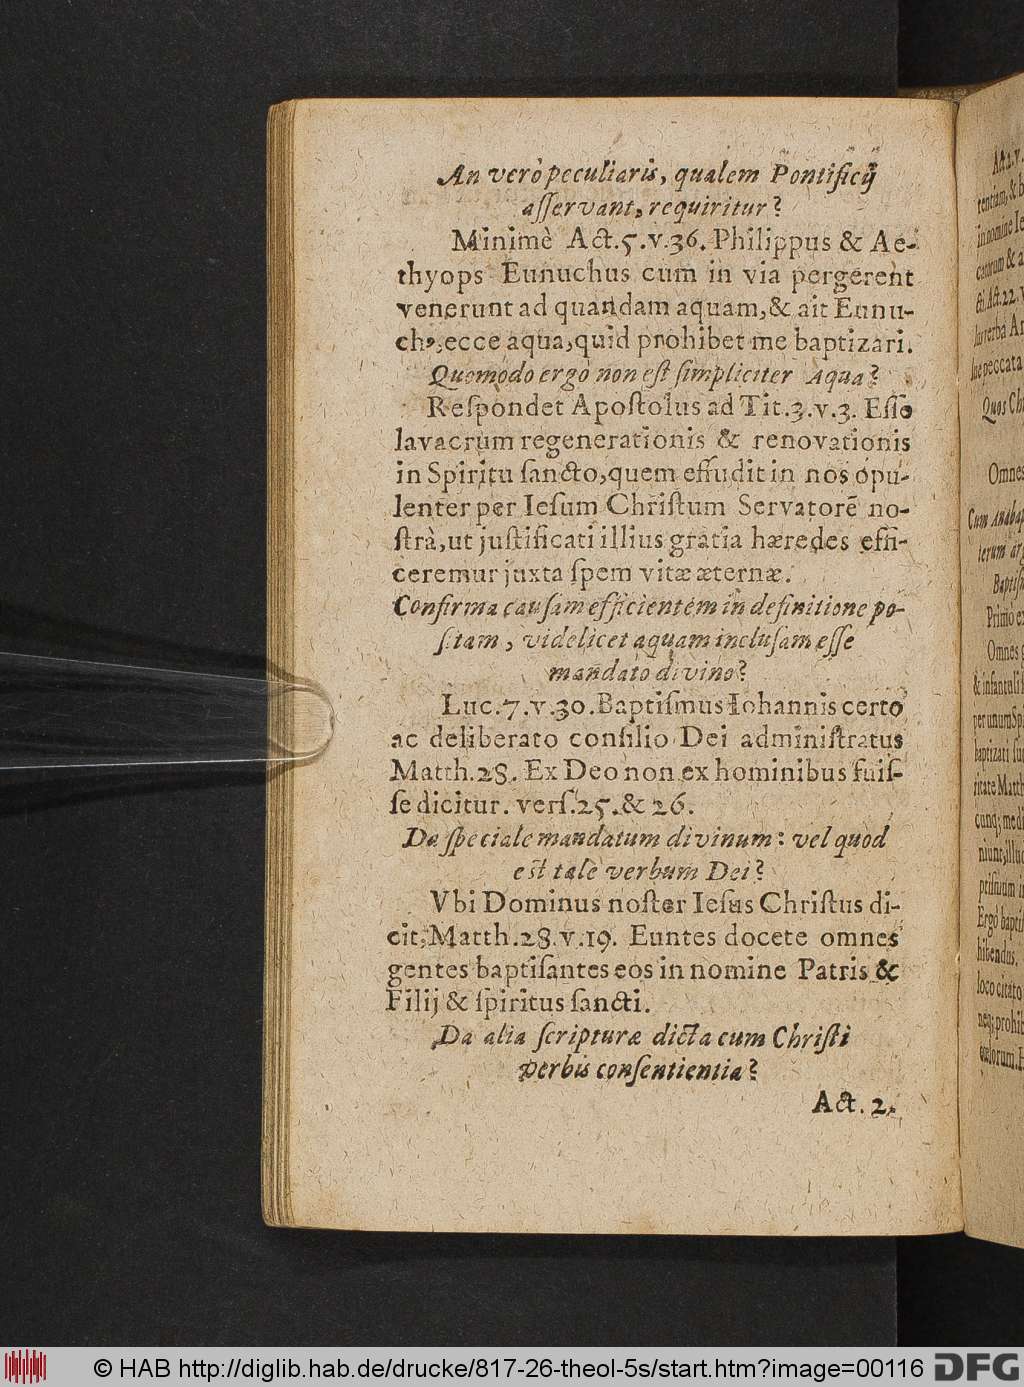 An verò peculiaris, qualem Pontificij
aſſervant, requiritur?
Minimè Act.5.v.36. Philippus & Ae-
thyops Eunuchus cum in via pergerent
venerunt ad quandam aquam,& ait Eunu-
chꝰ,ecce aqua,quid prohibet me baptizari.
Quomodo ergo non eſt ſimpliciter Aqua?
Reſpondet Apoſtolus ad Tit.3.v.3. Eſſe
lavacrum regenerationis & renovationis
in Spiritu ſancto,quem effudit in nos opu-
lenter per Ieſum Chriſtum Servatorē no-
ſtrã,ut juſtificati illius gratia hæredes effi-
ceremur juxta ſpem vitæ æternæ.
Confirma cauſam efficientem in definitione po-
ſitam, videlicet aquam incluſam eſſe
mandato divino?
Luc.7.v.30. Baptiſmus Iohannis certo
ac deliberato conſilio Dei adminiſtratus
Matth.28. Ex Deo non ex hominibus fuiſ-
ſe dicitur. verſ.25.& 26.
Da ſpeciale mandatum divinum: vel quod
eſt tale verbum Dei?
Vbi Dominus noſter Ieſus Chriſtus di-
cit, Matth.28.v.19. Euntes docete omnes
gentes baptiſantes eos in nomine Patris &
Filij & ſpiritus ſancti.
Da alia ſcripturæ dicta cum Chriſti
verbis conſentientia?
Act. 2.
Act.2.v.
in nomine Ie
Act.22.v
peccata
Quos Ch
Omnes
Cum Anabap
Baptiſ
Primò ex
Omnes g
& infantuli
per unum Spi
baptizati
Matth
Ergò bapti
hibendus.
loco citato
© HAB http://diglib.hab.de/drucke/817-26-theol-5s/start.htm?image=00116
DFG